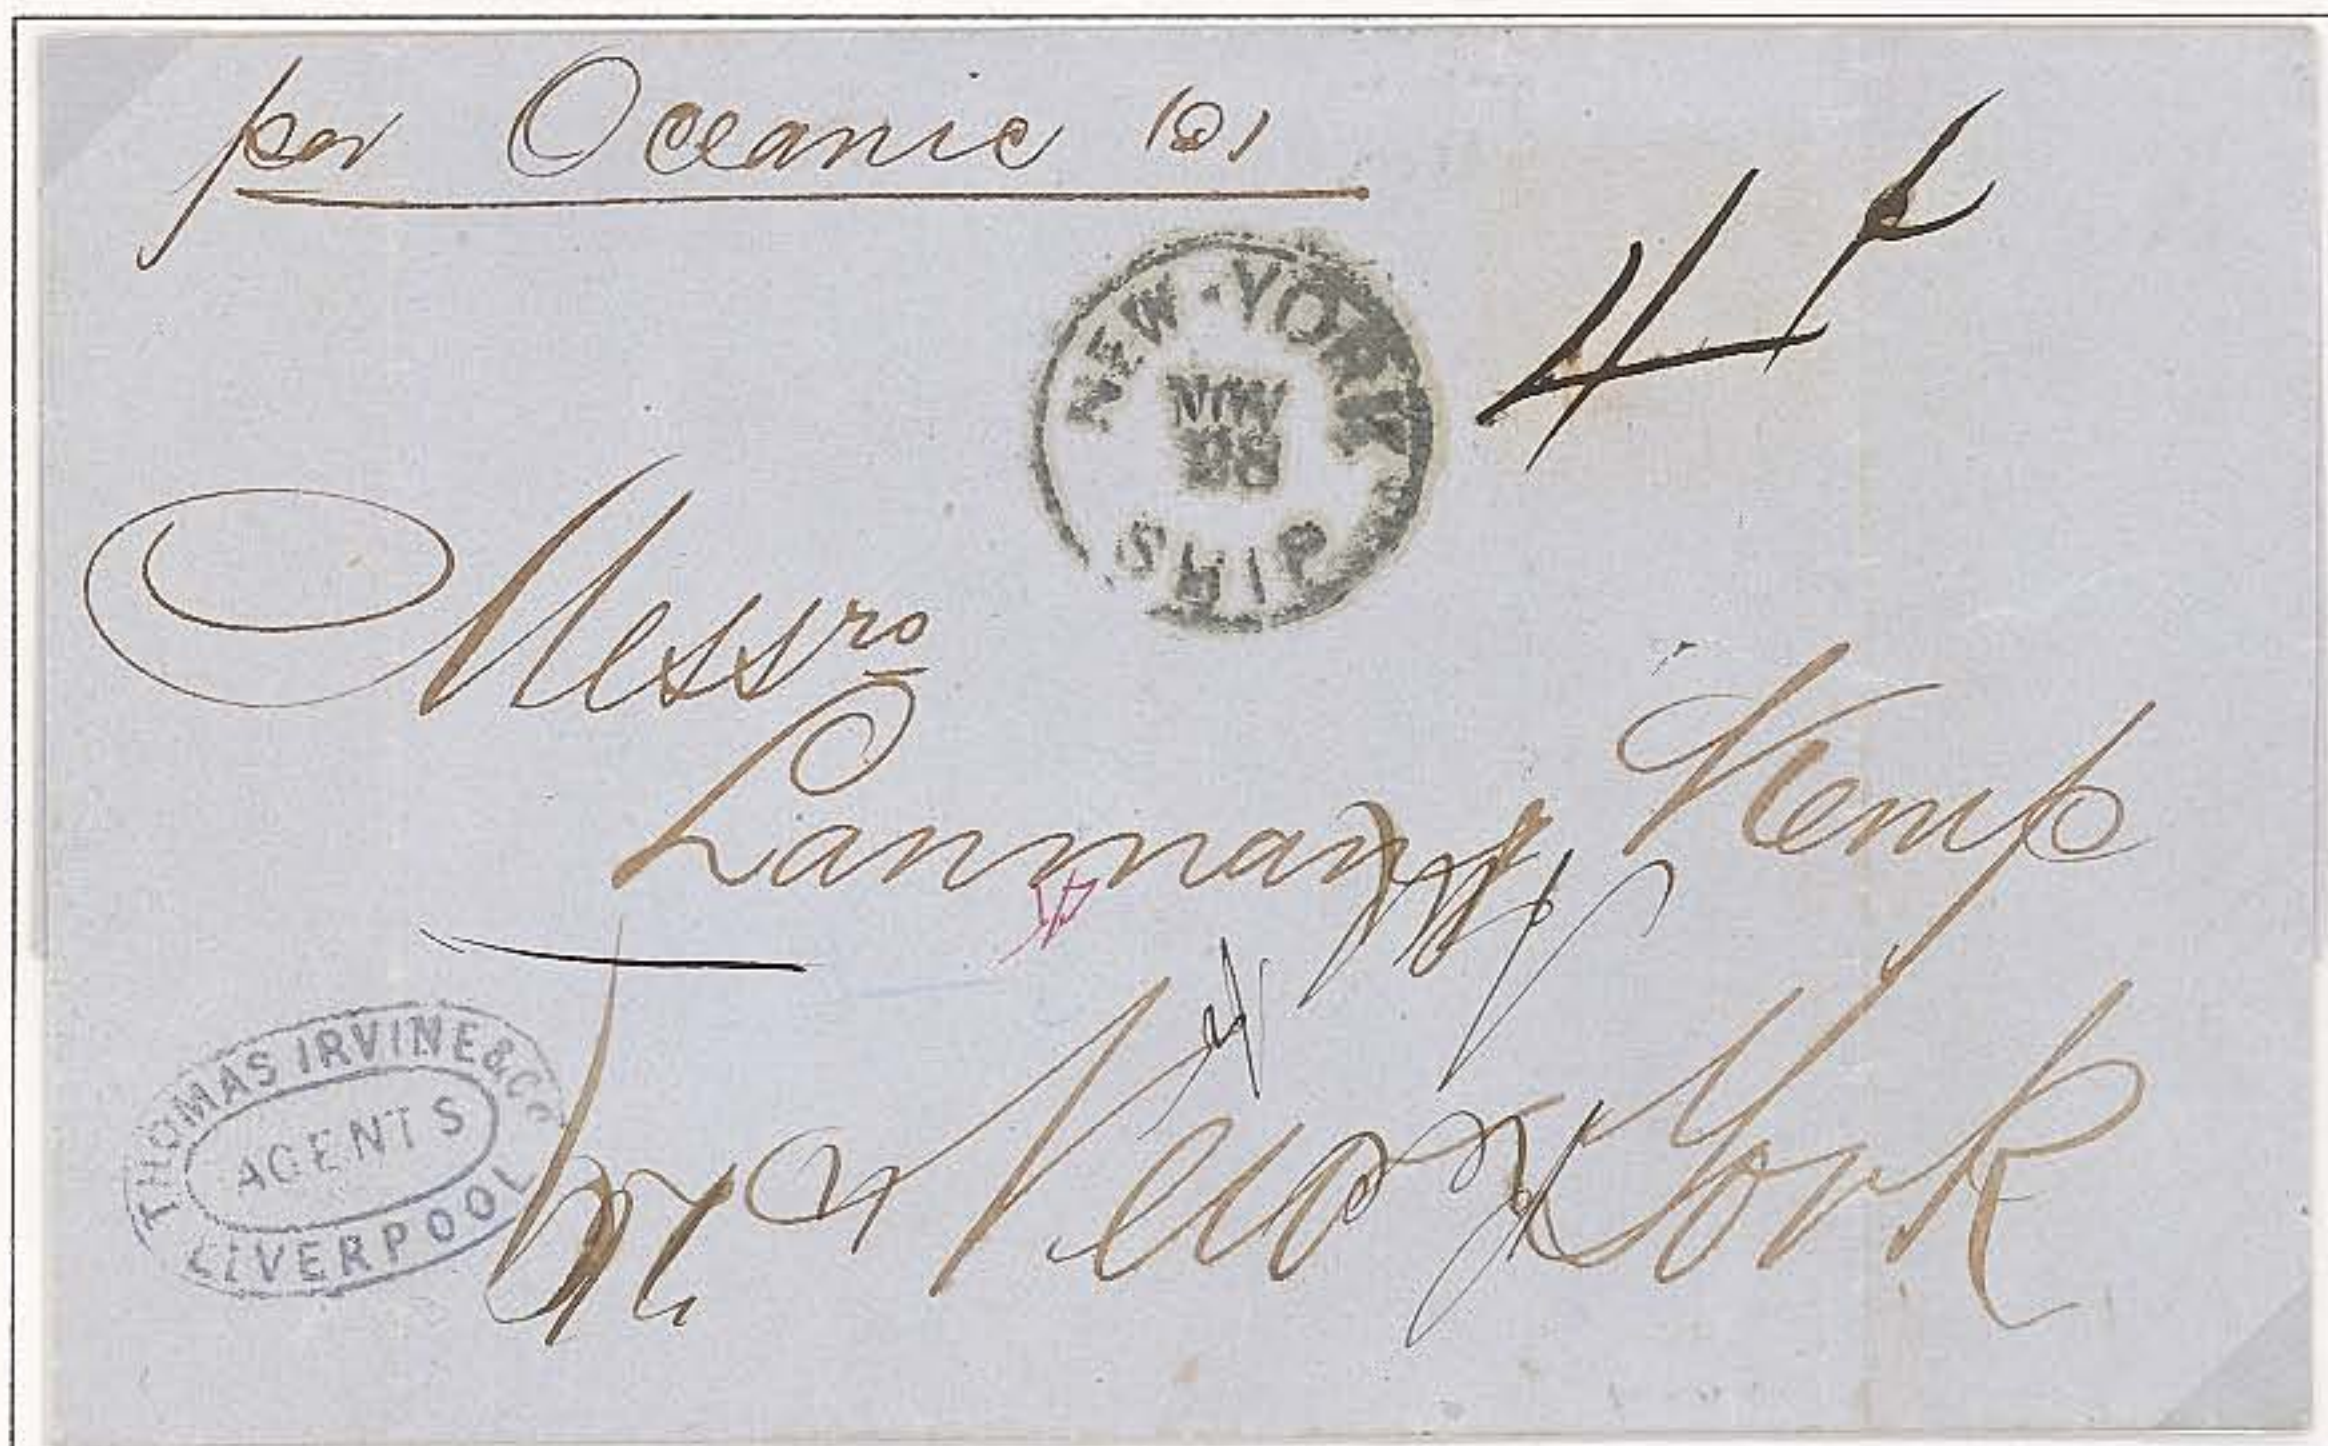 per Oceanic (S)
NEW·YORK
NOV
28
SHIP
4
Messrs
Lanman & Kemp
New York
THOMAS IRVINE & Co
AGENTS
LIVERPOOL